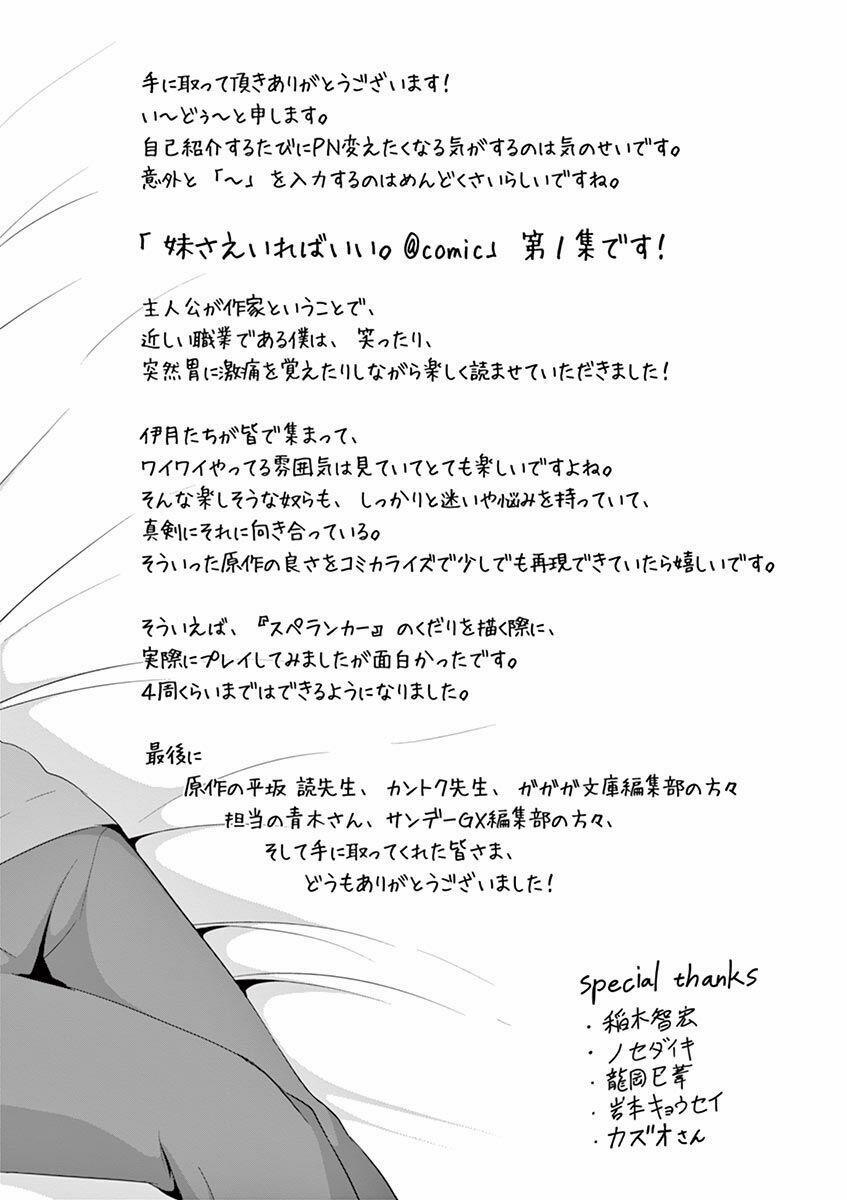 手に取って頂きありがとうございます!
い〜どぅ〜と申します。
自己紹介するたびにPN変えたくなる気がするのは気のせいです。
意外と「〜」を入力するのはめんどくさいらしいですね。
「妹さえいればいい。@comic」第1集です!
主人公が作家ということで、
近しい職業である僕は、笑ったり、
突然胃に激痛を覚えたりしながら楽しく読ませていただきました!
伊月たちが皆で集まって、
ワイワイやってる雰囲気は見ていてとても楽しいですよね。
そんな楽しそうな奴らも、しっかりと迷いや悩みを持っていて、
真剣にそれに向き合っている。
そういった原作の良さをコミカライズで少しでも再現できていたら嬉しいです。
そういえば、『スペランカー』のくだりを描く際に、
実際にプレイしてみましたが面白かったです。
4周くらいまではできるようになりました。
最後に
原作の平坂 読先生、カントク先生、ガガガ文庫編集部の方々
担当の青木さん、サンデーGX編集部の方々、
そして手に取ってくれた皆さま、
どうもありがとうございました!
special thanks
・稲木智宏
・ノセダイキ
・龍岡巳葦
・岩本キョウセイ
・カズオさん